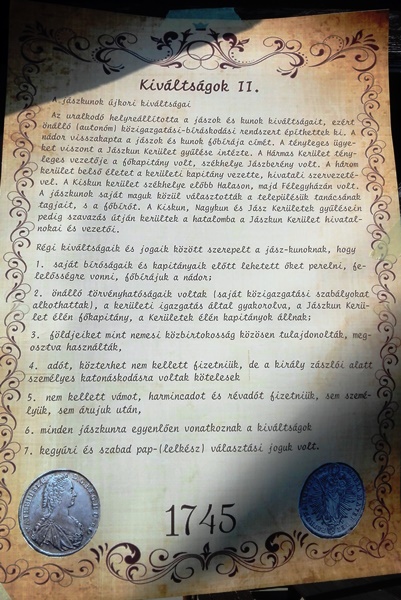 Kiváltságok II.
A jászkunok újkori kiváltságai
Az uralkodó helyreállította a jászok és kunok kiváltságait, ezért
önálló (autonóm) közigazgatási-bíráskodási rendszert építhettek ki. A
nádor visszakapta a jászok és kunok főbírája címét. A tényleges ügye-
ket viszont a Jászkun Kerület gyűlése intézte. A Hármas Kerület tény-
leges vezetője a főkapitány volt, székhelye Jászberény volt. A három
kerület belső életet a kerületi kapitány vezette, hivatali szervezeté-
vel. A Kiskun kerület székhelye előbb Halason, majd Félegyházán volt.
A jászkunok saját maguk közül választották a településük tanácsának
tagjait, s a főbírót. A Kiskun, Nagykun és Jász Kerületek gyűlésein
pedig szavazás útján kerültek a hatalomba a Jászkun Kerület hivatal-
nokai és vezetői.
Régi kiváltságaik és jogaik között szerepelt a jász-kunoknak, hogy
1. saját bíróságaik és kapitányaik előtt lehetett őket perelni, fe-
lelősségre vonni, főbírájuk a nádor;
2. önálló törvényhatóságaik voltak (saját közigazgatási szabályokat
alkothattak), a kerületi igazgatás által gyakorolva, a Jászkun Kerü-
let élén főkapitány, a Kerületek élén kapitányok állnak;
3. földjeiket mint nemesi közbirtokosság közösen tulajdonolták, meg-
osztva használták,
4. adót, közterhet nem kellett fizetniük, de a király zászlói alatt
személyes katonáskodásra voltak kötelesek
5. nem kellett vámot, harmincadot és révadót fizetniük, sem szemé-
lyük, sem árujuk után,
6. minden jászkunra egyenlően vonatkoznak a kiváltságok
7. kegyúri és szabad pap-(lelkész) választási joguk volt.
1745